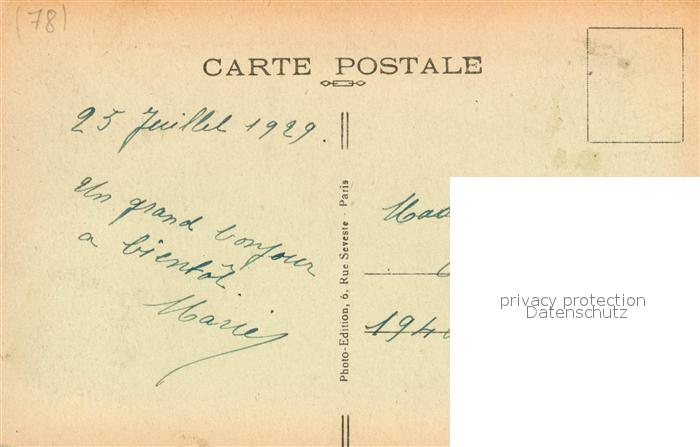 (78)
CARTE POSTALE
25 Juillet 1929.
Un grand bonjour
a bientôt
Marie
Photo-Edition, 6, Rue Seveste - Paris
privacy protection
Datenschutz